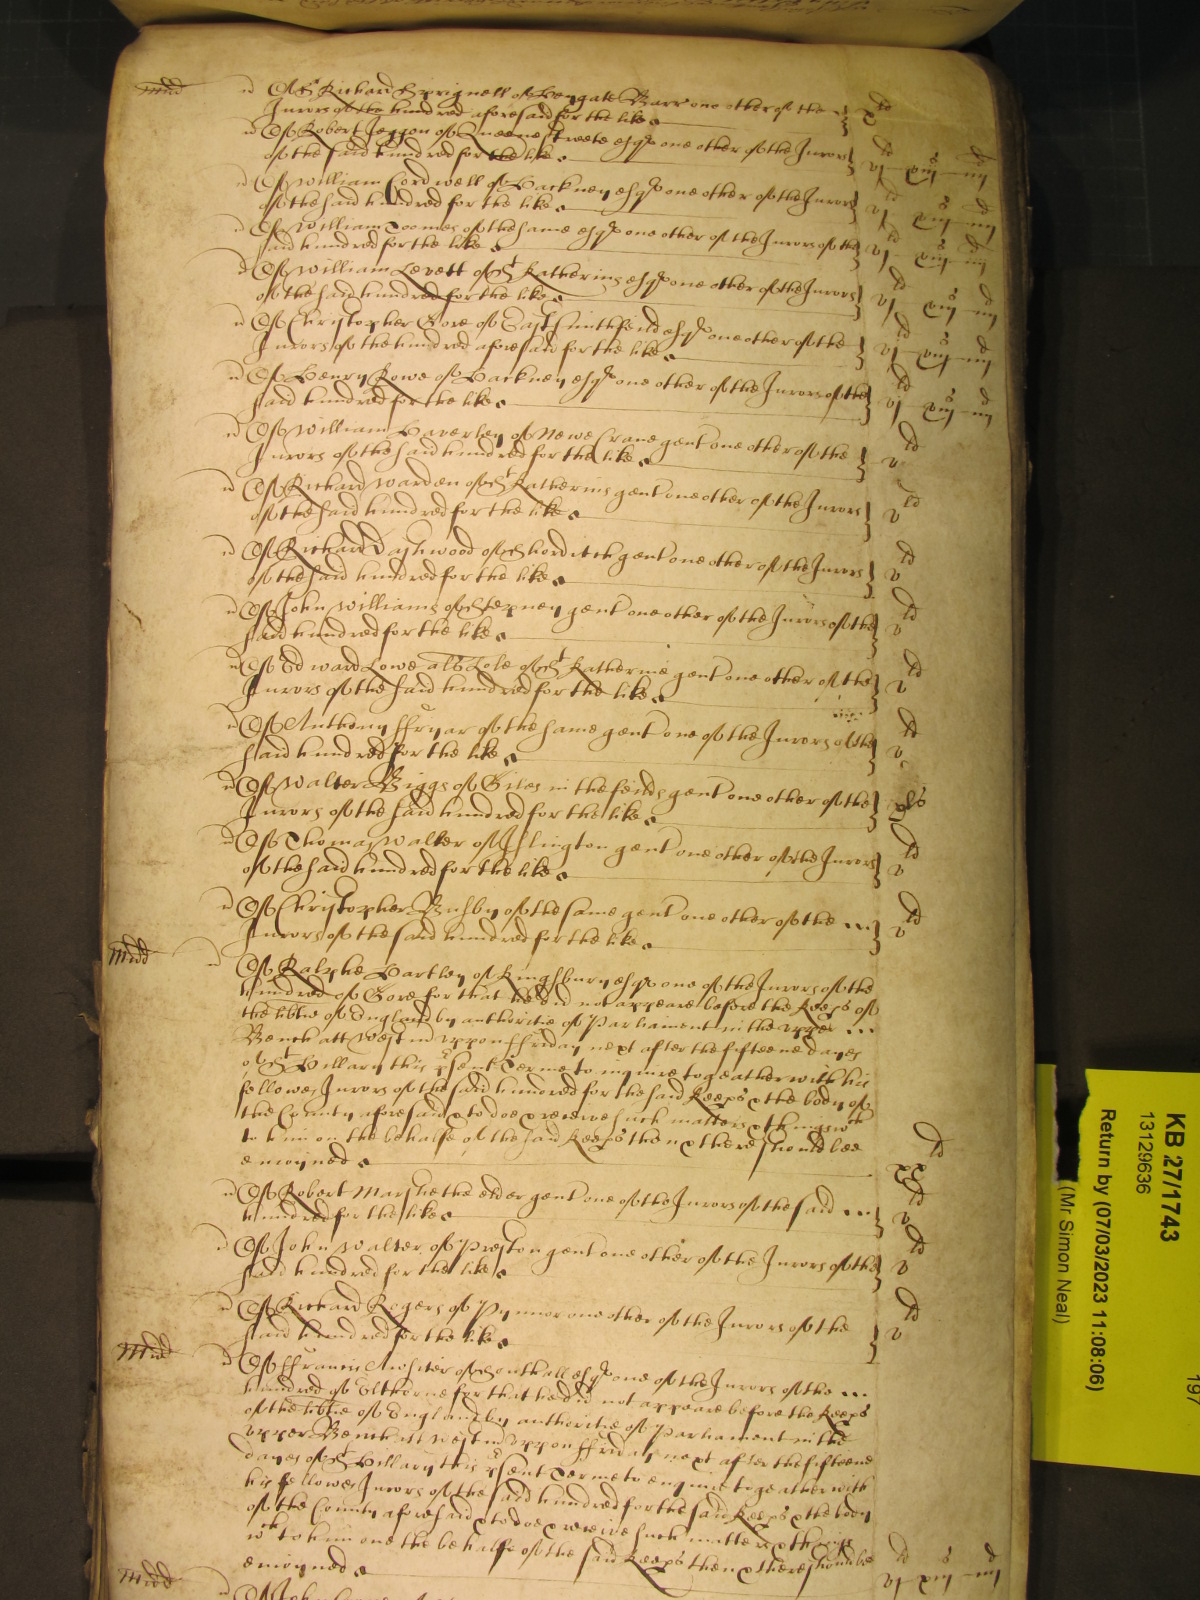 Midd
Of Sr Richard Sprignell of Highgate Barr one other of the
Jurors of the hundred aforesaid for the like
Of Robert Jeggon of Queenestreete esqr one other of the Jurors
of the said hundred for the like
Of William Cordwell of Hackney esqr one other of the Jurors
of the said hundred for the like
Of William Toomes of the same esqr one other of the Jurors of the
said hundred for the like
Of William Levett of St Katherins esqr one other of the Jurors
of the said hundred for the like
Of Christopher Gore of East Smithfeild esqr one other of the
Jurors of the hundred aforesaid for the like
Of Henry Rowe of Hackney esqr one other of the Jurors of the
said hundred for the like
Of William Haverley of Newe Crane gent one other of the
Jurors of the said hundred for the like
Of Richard Warden of St Katherins gent one other of the Jurors
of the said hundred for the like
Of Richard Dashwood of Shorditch gent one other of the Jurors
of the said hundred for the like
Of John Williams of Stepney gent one other of the Jurors of the
said hundred for the like
Of Edward Lowe als Lole of St Katherine gent one other of the
Jurors of the said hundred for the like
Of Anthony ffryar of the same gent one of the Jurors of the
said hundred for the like
Of Walter Biggs of Giles in the feilds gent one other of the
Jurors of the said hundred for the like
Of Thomas Walter of Islington gent one other of the Jurors
of the said hundred for the like
Of Christopher Busby of the same gent one other of the
Jurors of the said hundred for the like
Midd
Of Ralphe Hartley of Kingsbury esqr one of the Jurors of the
hundred of Gore for that hee did not appeare before the Keeps of
the libtie of England by authoritie of Parliament in the upper
Bench att Westm uppon ffriday next after the fifteene dayes
of St Hillary this psent Terme to inquire togeather with his
fellowes Jurors of the said hundred for the said Keeps & the body of
the County aforesaid & to doe & receive such matters & things wch
to him on the behalfe of the said Keeps then & there should bee
enioyned
Of Robert Marshe the elder gent one of the Jurors of the said
hundred for the like
Of John Walter of Preston gent one other of the Jurors of the
said hundred for the like
Of Richard Rogers of Pynnor one other of the Jurors of the
said hundred for the like
Midd
Of ffrancis Awsiter of Southall esqr one of the Jurors of the
hundred of Elthorne for that he did not appeare before the Keeps
of the libtie of England by authoritie of Parliament in the
upper Bench att Westm uppon ffriday next after the fifteene
dayes of St Hillary this psent Terme to enquire togeather with
his fellowes Jurors of the said hundred for the said Keeps & the body
of the County aforesaid & to doe & receive such matters & things
wch to him on the behalfe of the said Keeps then & there should be
enioyned
Midd
KB 27/1743
13129636
Return by (07/03/2023 11:08:06)
(Mr Simon Neal)
197